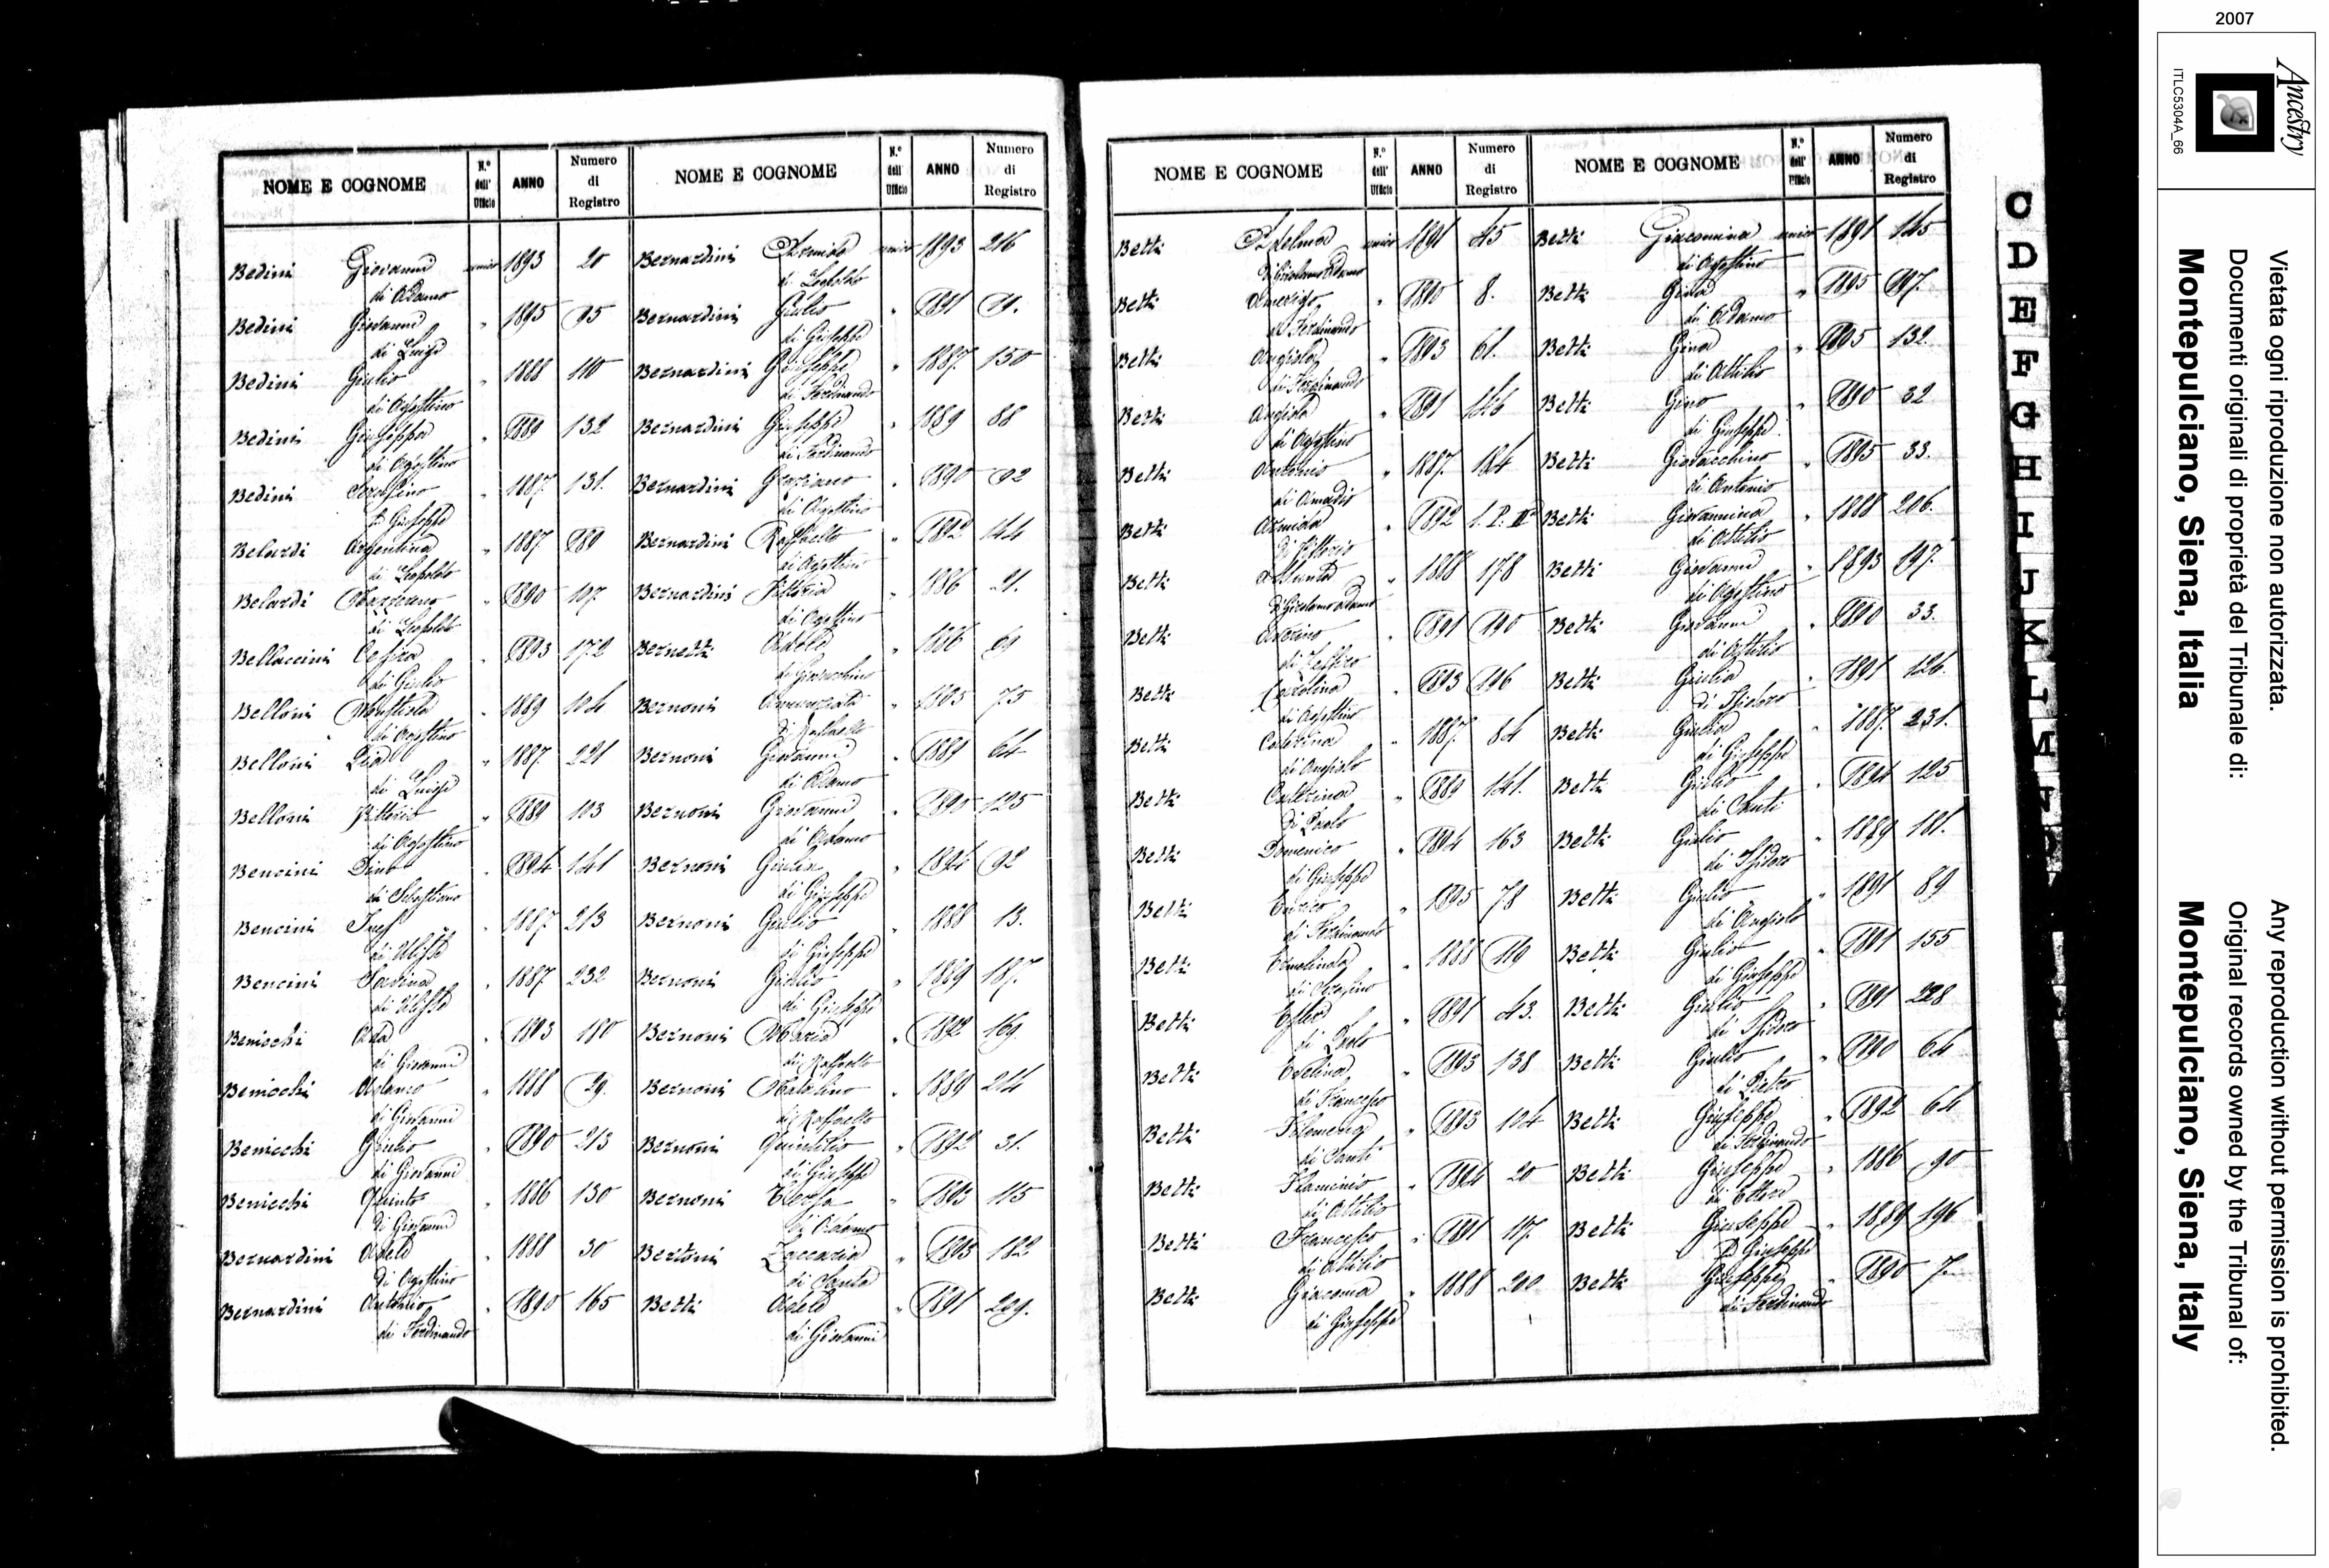 NOME E COGNOME N.° dell' Ufficio ANNO Numero di Registro
Bedini Giovanni unico 1893 20
di Adamo
Bedini Giovanni " 1895 95
di Luigi
Bedini Giulio " 1888 110
di Agostino
Bedini Giuseppa " 1889 132
di Agostino
Bedini Serafino " 1887 131.
di Giuseppe
Belardi Argentina " 1887
di Leopoldo
Belardi " 1890 107.
di Leopoldo
Bellaccini Cesira " 1893 172
di Giulio
Belloni " 1889 104
di Agostino
Belloni " 1887 221
di Luigi
Belloni Vittorio " 1889 103
di Agostino
Bencini Dino " 1894 141
di Sebastiano
Bencini Ines " 1887 213
di Ulisse
Bencini " 1887 232
di Ulisse
Benicchi Ada " 1893 180
di Giovanni
Benicchi Adamo " 1888 29.
di Giovanni
Benicchi Giulio " 1890 213
di Giovanni
Benicchi Quinto " 1886 130
di Giovanni
Bernardini Adele " 1888 30
di Agostino
Bernardini Antonio " 1890 165
di Ferdinando
NOME E COGNOME N.° dell' Ufficio ANNO Numero di Registro
Bernardini Armida unico 1893 216
di Leopoldo
Bernardini Giulio " 1891 19.
di Giuseppe
Bernardini Giuseppe " 1887 150
di Ferdinando
Bernardini Giuseppe " 1889 88
di Ferdinando
Bernardini Graziano " 1890 92
di Agostino
Bernardini Raffaello " 1892 144
di Agostino
Bernardini Vittoria " 1886 21.
di Agostino
Bernetti Adele " 1886 69
di Giovacchino
Bernoni Annunziata " 1895 75
di Raffaello
Bernoni Giovanni " 1889 64
di Adamo
Bernoni Giovanni " 1890 125
di Adamo
Bernoni Giulia " 1894 92
di Giuseppe
Bernoni Giulio " 1888 13.
di Giuseppe
Bernoni Giulio " 1889 187.
di Giuseppe
Bernoni Maria " 1892 169.
di Raffaello
Bernoni Natalino " 1889 214
di Raffaello
Bernoni Quintilio " 1892 31.
di Giuseppe
Bernoni Teresa " 1893 115
di Adamo
Bertoni Zaccaria " 1893 182
di Santa
Betti Adele " 1891 229.
di Giovanni
NOME E COGNOME N.° dell' Ufficio ANNO Numero di Registro
Betti Adelma unico 1891 45
di Girolamo Adamo
Betti Amerigo " 1890 8.
di Ferdinando
Betti Angiola " 1893 61.
di Ferdinando
Betti Angiola " 1891 146
di Agostino
Betti Antonio " 1887. 184
di Amadio
Betti Armida " 1892 1. P. II
di Vittorio
Betti Assunta " 1888 178
di Girolamo Adamo
Betti " 1891 190
Betti Carolina " 1893 196
di Agostino
Betti Caterina " 1887 84
di Angiolo
Betti Caterina " 1889 141.
di Paolo
Betti Domenico " 1894 163
di Giuseppe
Betti Enrico " 1895 78
di Ferdinando
Betti Ermelinda " 1888 119
di Serafino
Betti Ester " 1891 43.
di Paolo
Betti Evelina " 1893 138
di Francesco
Betti Filomena " 1893 104
di Santi
Betti Flaminio " 1894 20
di Attilio
Betti Francesco " 1891 117.
di Attilio
Betti Giacoma " 1888 200
di Giuseppe
NOME E COGNOME N.° dell' Ufficio ANNO Numero di Registro
Betti Giacomina unico 1891 145
di Agostino
Betti Gina " 1895 197.
di Adamo
Betti Gina " 1895 132
di Attilio
Betti Gino " 1890 32
di Giuseppe
Betti Giovacchino " 1895 33.
di Antonio
Betti Giovannina " 1888 206.
di Attilio
Betti Giovanni " 1893 197.
di Agostino
Betti Giovanni " 1890 33.
di Attilio
Betti Giulia " 1891 126.
di Isidoro
Betti Giulia " 1887. 231.
di Giuseppe
Betti Giulio " 1894 125
di Santi
Betti Giulio " 1889 181.
di Isidoro
Betti Giulio " 1891 89
di Angiolo
Betti Giulio " 1891 155
di Giuseppe
Betti Giulio " 1891 228
di Isidoro
Betti Giulio " 1890 64
di Pietro
Betti Giuseppe " 1892 64
di Ferdinando
Betti Giuseppe " 1886 90
di Ettore
Betti Giuseppe " 1889 196
di Giuseppe
Betti Giuseppe " 1890 7
di Ferdinando
D
E
F
G
H
I
J
2007
Ancestry
ITLC5304A_66
Vietata ogni riproduzione non autorizzata.
Documenti originali di proprietà del Tribunale di:
Montepulciano, Siena, Italia
Any reproduction without permission is prohibited.
Original records owned by the Tribunal of:
Montepulciano, Siena, Italy